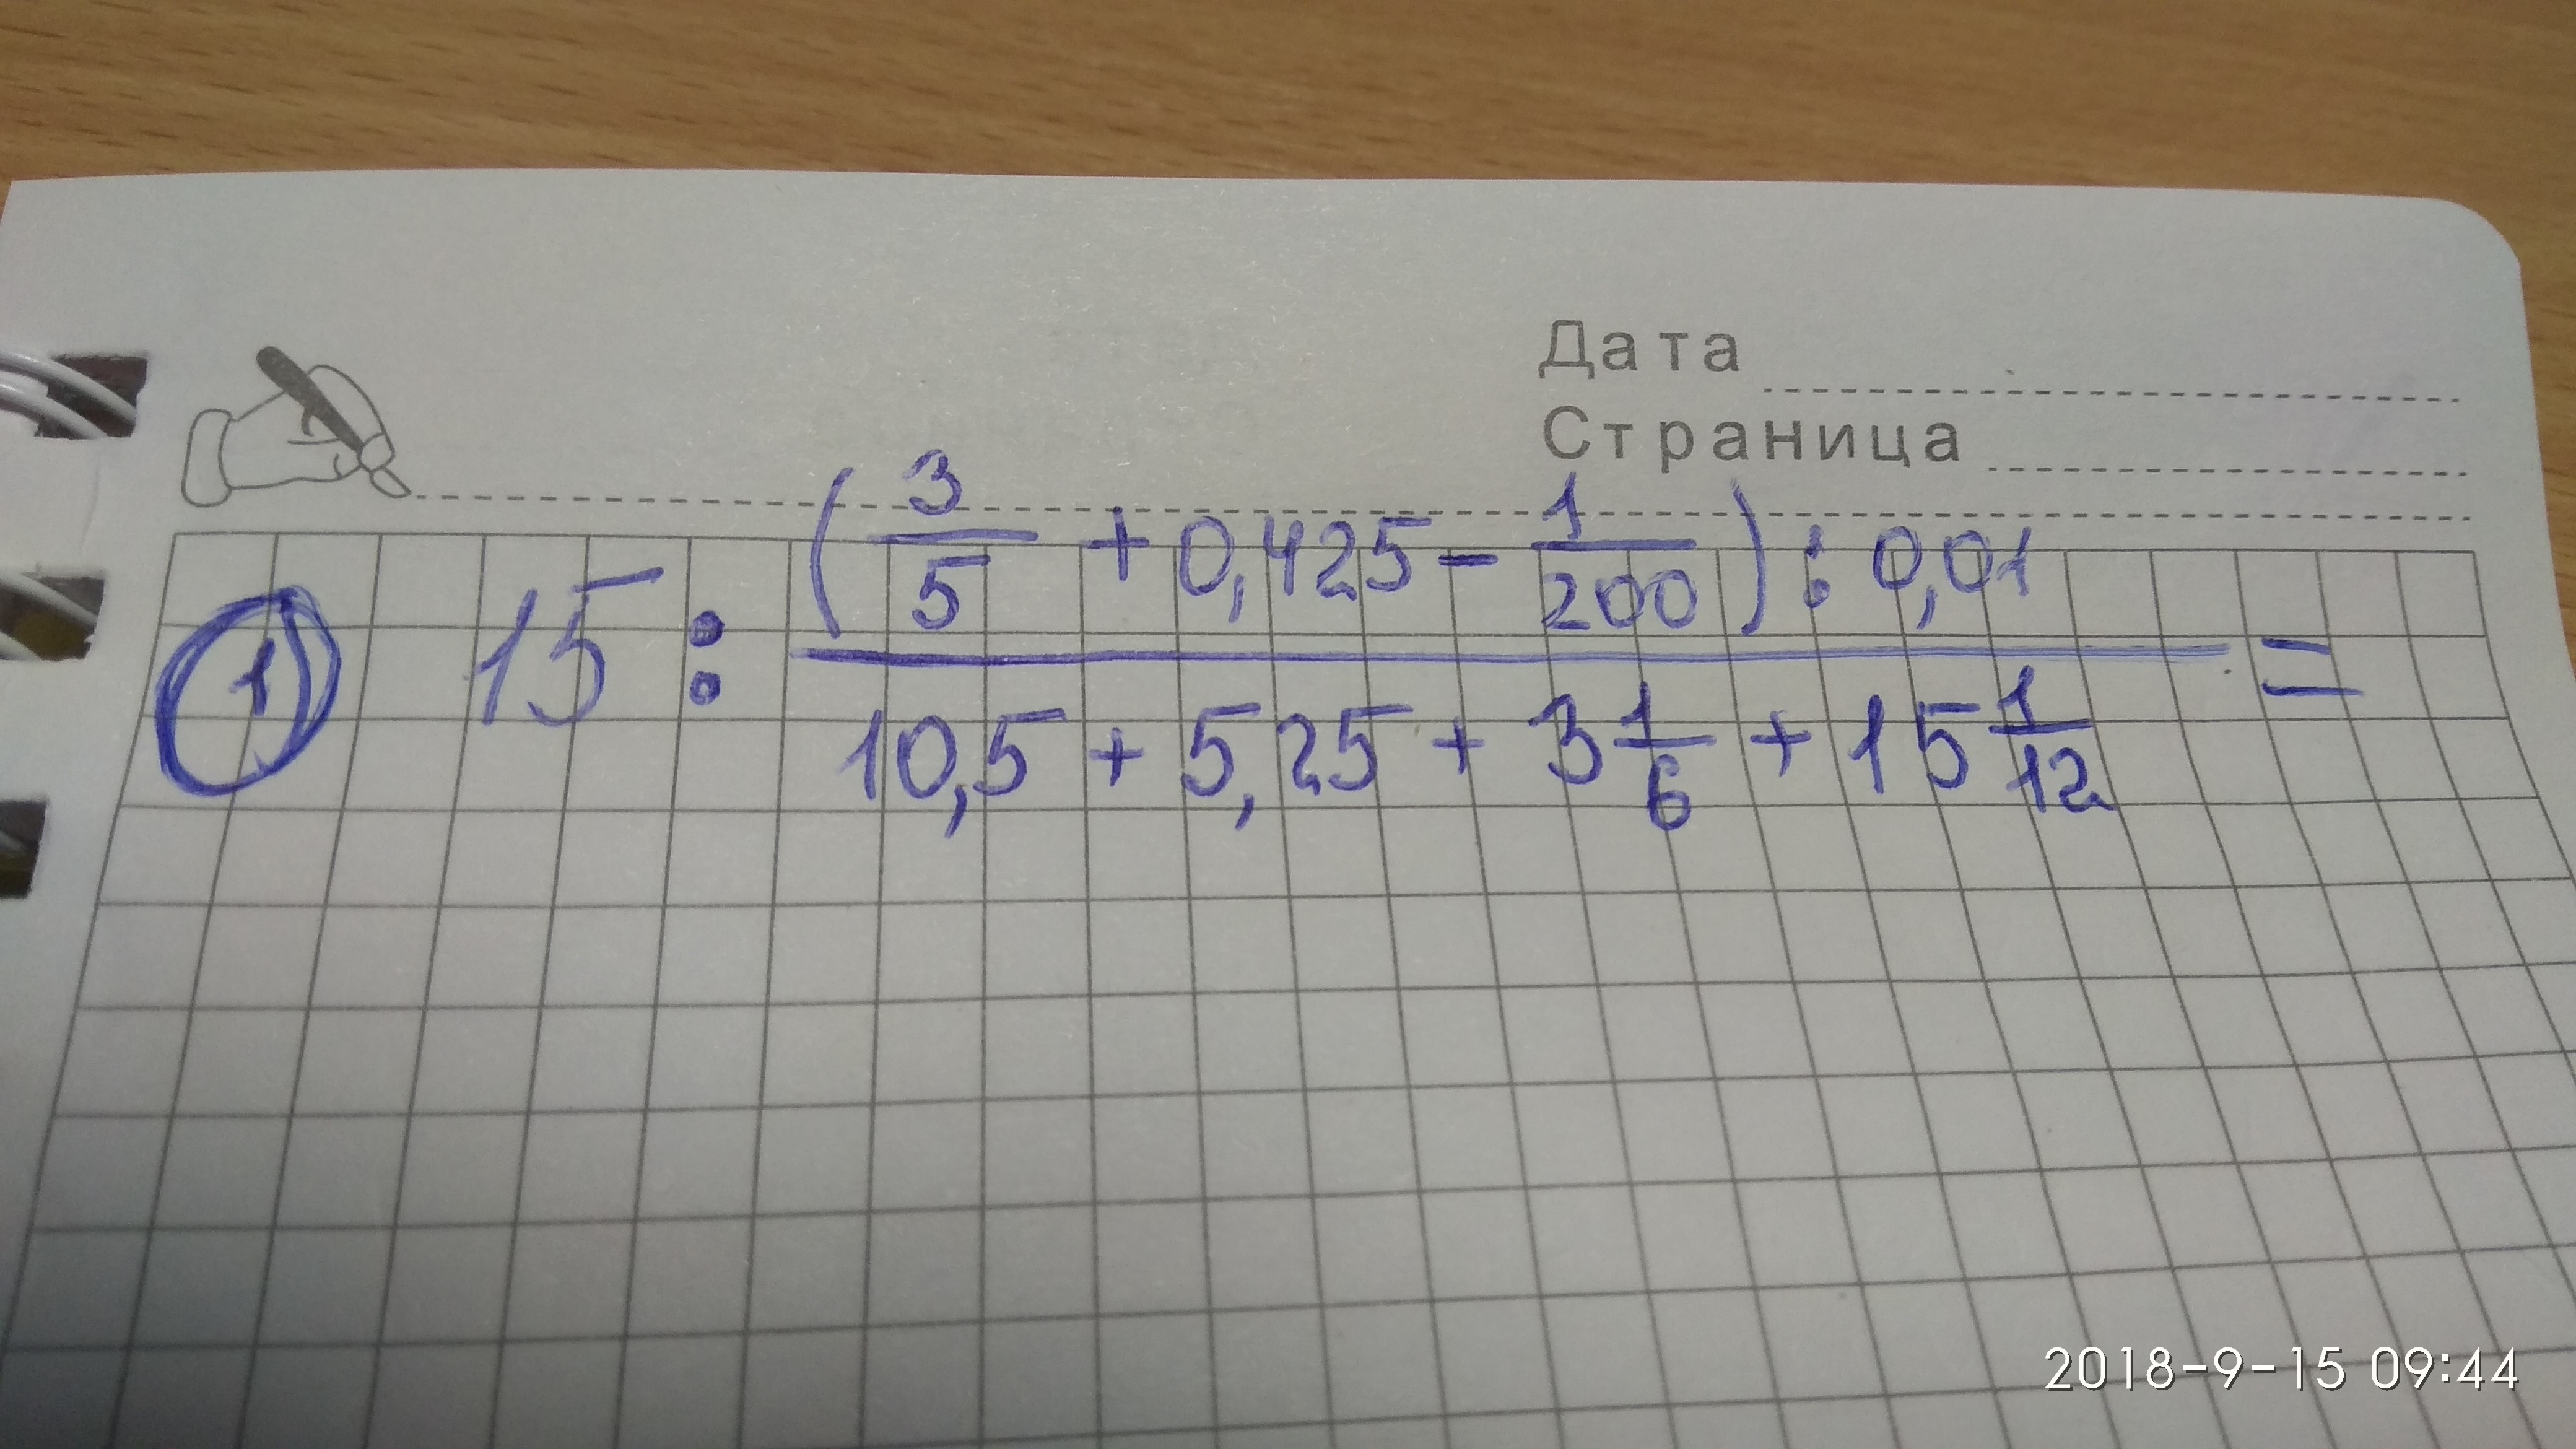 Дата
Страница
1) 15 : ((3/5 + 0,425 - 1/200) : 0,01) / (10,5 + 5,25 + 3 1/6 + 15 1/12) =
2018-9-15 09:44